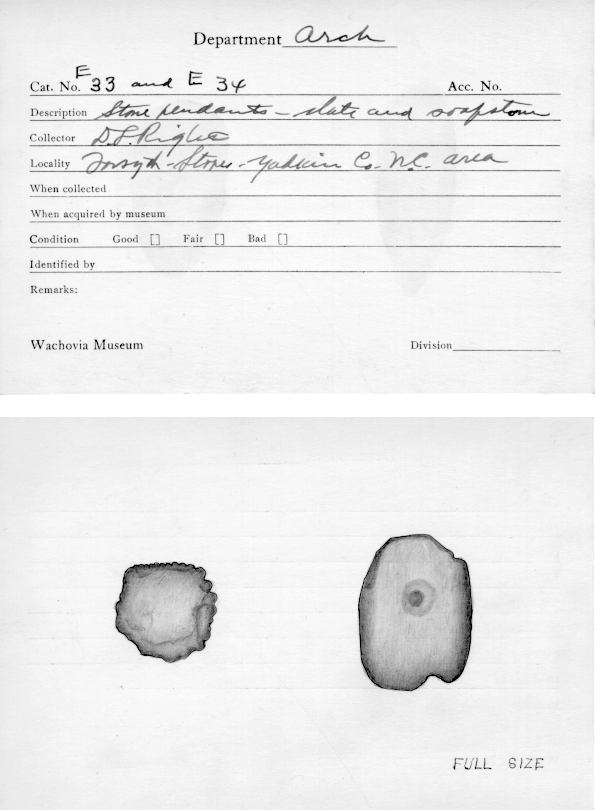 Department Arch
Cat. No. E 33 and E 34 Acc. No.
Description Stone pendants – slate and soapstone
Collector D.L. Righte
Locality Forsyth-Stokes-Yadkin Co. N.C. area
When collected
When acquired by museum
Condition Good [] Fair [] Bad []
Identified by
Remarks:
Wachovia Museum Division
FULL SIZE